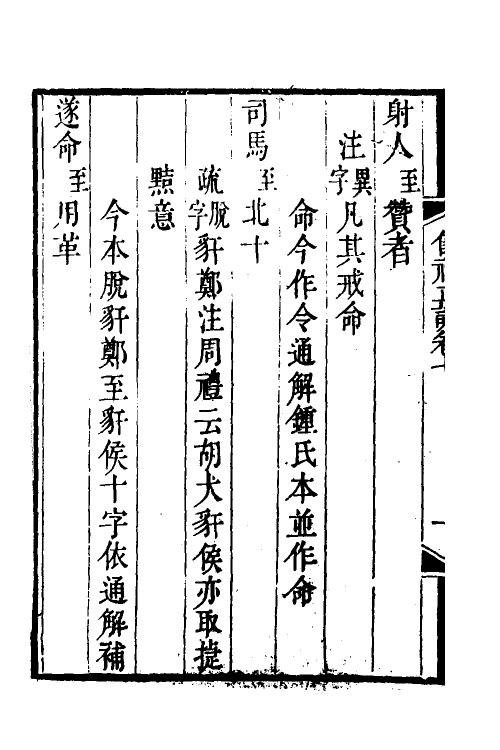 射人至贊者
注異字凡其戒命
命今作令通解鍾氏本並作命
司馬至北十
疏脫字豻鄭注周禮云胡犬豻侯亦取捷
黠意
今本脫豻鄭至豻侯十字依通解補
遂命至用革